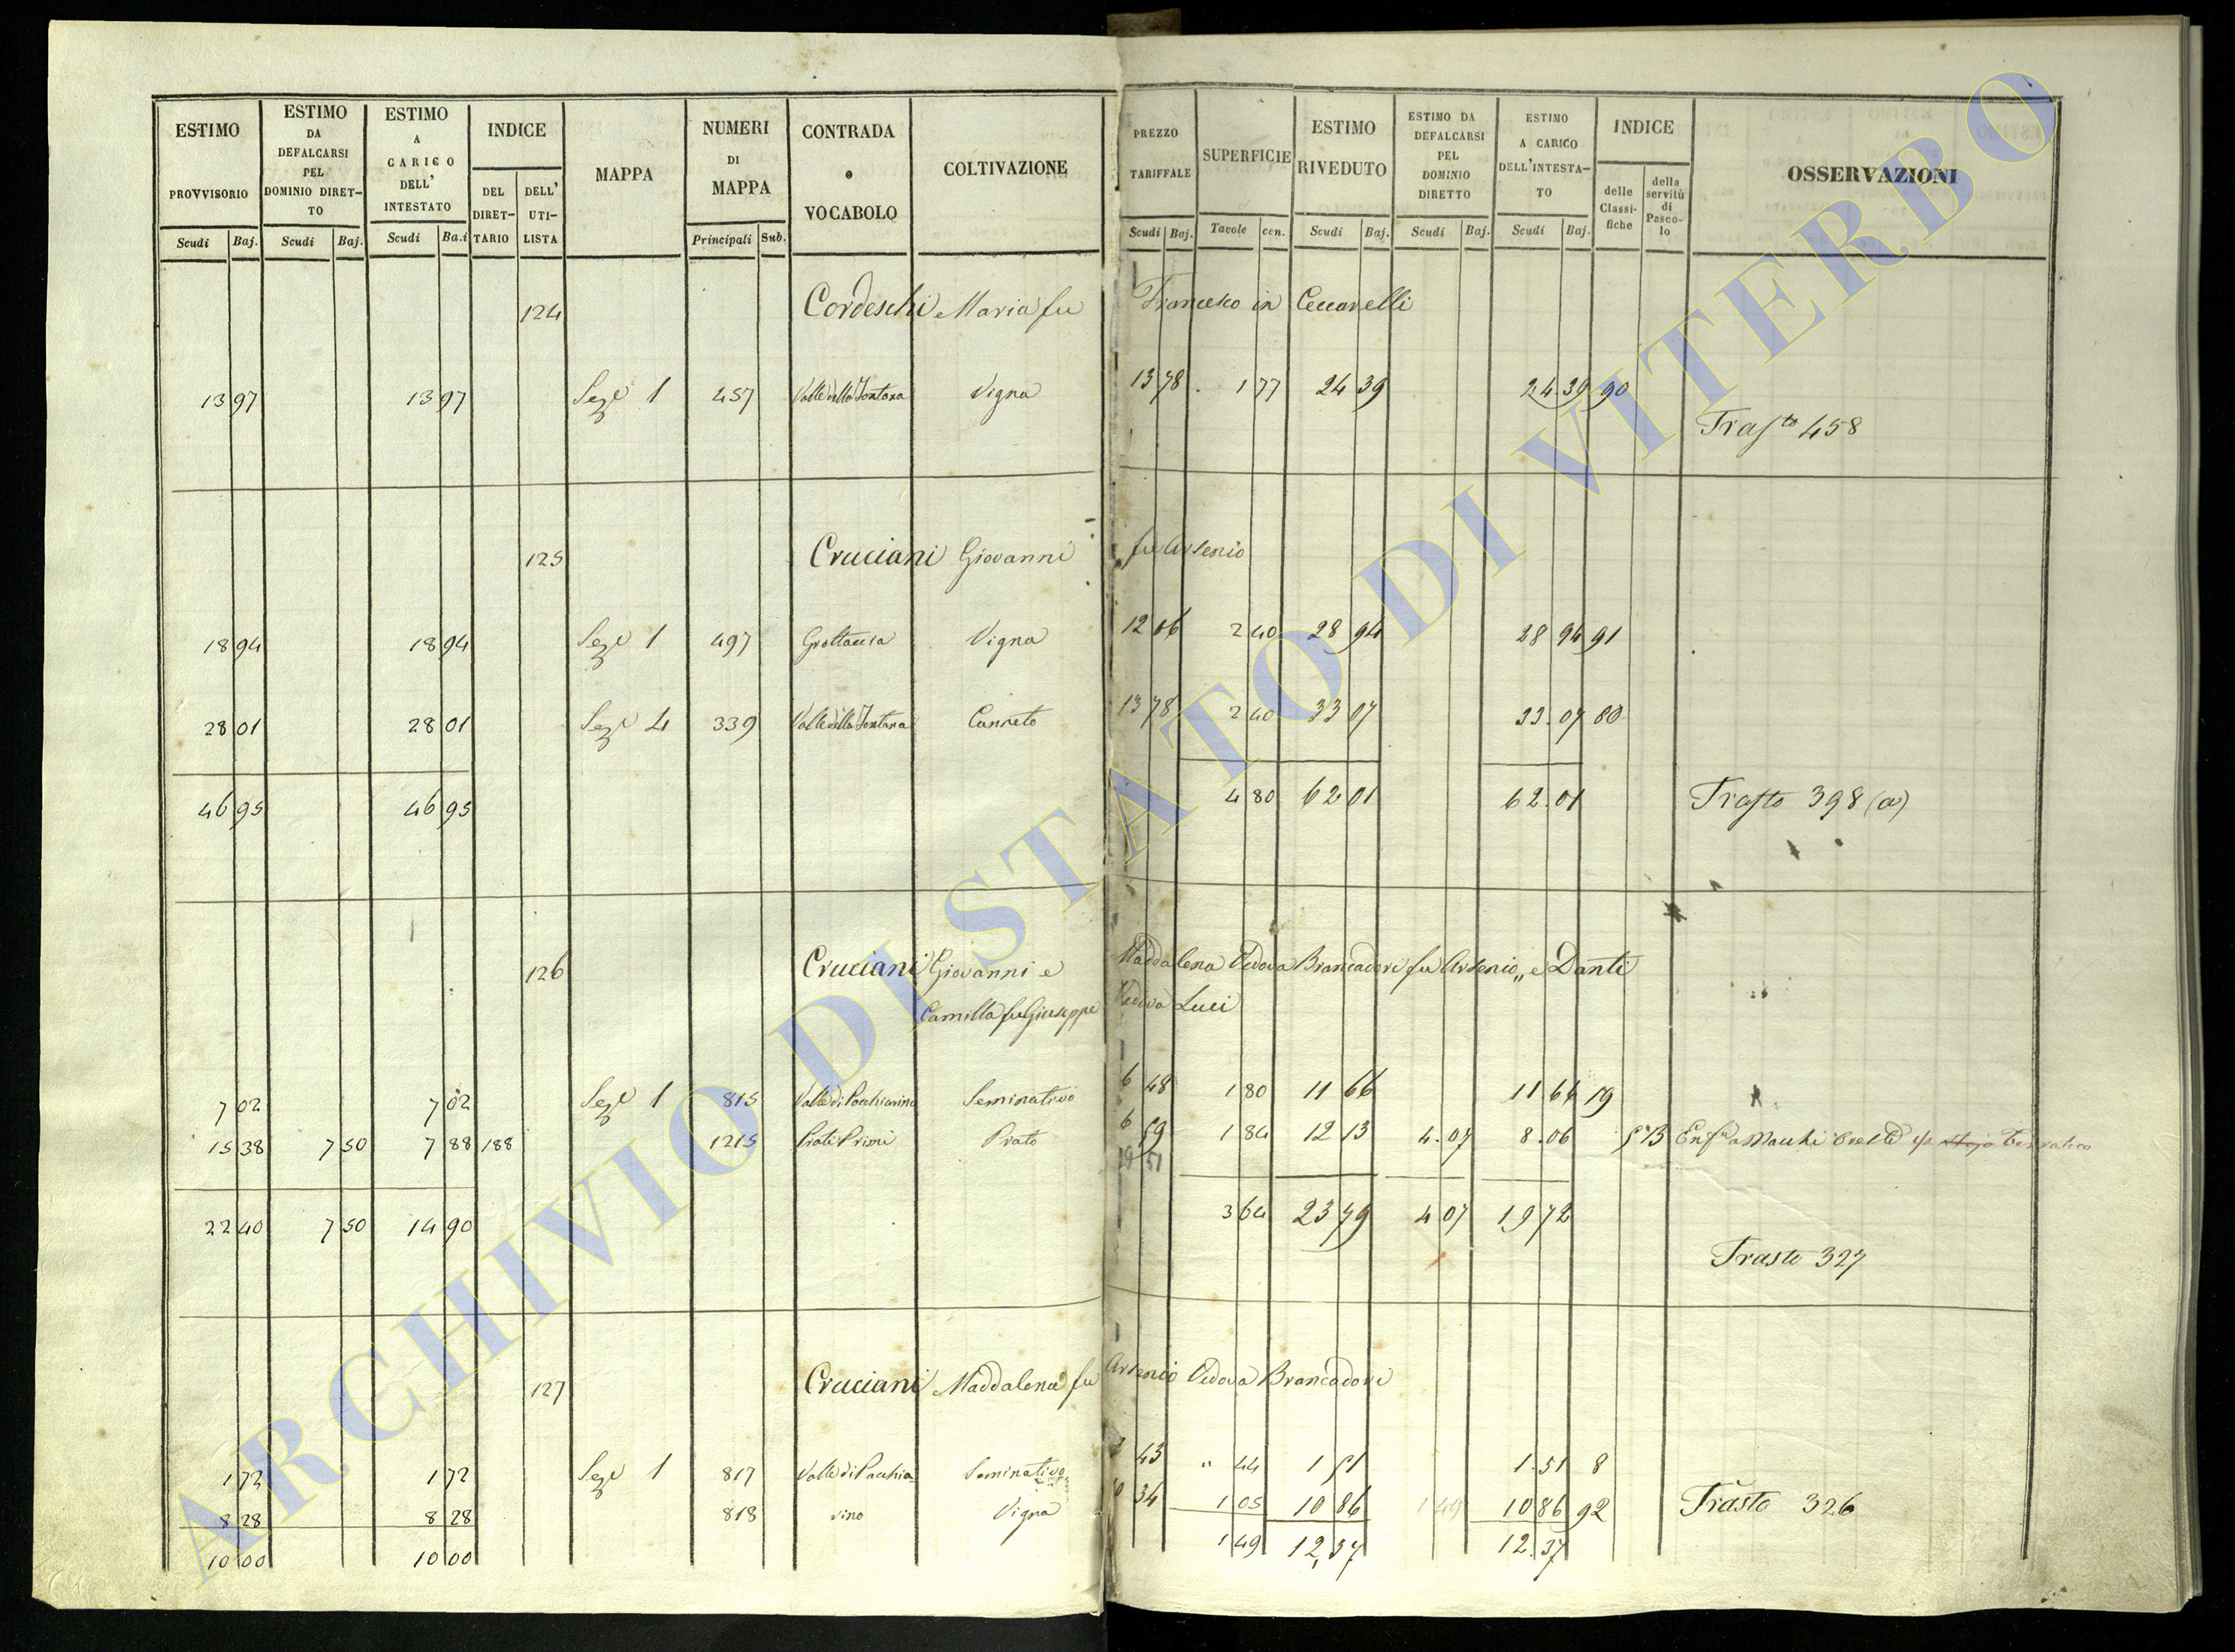 ESTIMO PROVVISORIO | ESTIMO DA DEFALCARSI PEL DOMINIO DIRETTO | ESTIMO A CARICO DELL' INTESTATO | INDICE | MAPPA | NUMERI DI MAPPA | CONTRADA o VOCABOLO | COLTIVAZIONE | PREZZO TARIFFALE | SUPERFICIE | ESTIMO RIVEDUTO | ESTIMO DA DEFALCARSI PEL DOMINIO DIRETTO | ESTIMO A CARICO DELL'INTESTATO | INDICE | OSSERVAZIONI
DEL DIRETTARIO | DELL' UTILISTA | delle Classifiche | della servitù di Pascolo
Scudi Baj. | Scudi Baj. | Scudi Ba.i | Principali Sub. | Scudi Baj. | Tavole cen. | Scudi Baj. | Scudi Baj. | Scudi Baj.
124 Cordeschi Maria fu Francesco in Ceccarelli
13 97 | 13 97 | Seze 1 | 457 | Valle della Fontana | Vigna | 13 78 | 1 77 | 24 39 | 24.39 | 90
Trasto 458
125 Cruciani Giovanni fu Arsenio
18 94 | 18 94 | Seze 1 | 497 | Grottaccia | Vigna | 12 06 | 2 40 | 28 94 | 28 94 | 91
28 01 | 28 01 | Seze 4 | 339 | Valle della Fontana | Canneto | 13 78 | 2 40 | 33 07 | 33.07 | 80
46 95 | 46 95 | 4 80 | 62 01 | 62.01 | Trasto 398 (a)
126 Cruciani Giovanni e Maddalena Vedova Brancadori fu Arsenio,, e Dante
Camilla fu Giuseppe Vedova Luci
7 02 | 7 02 | Seze 1 | 815 | Valle di Pacchiarino | Seminativo | 6 48 | 1 80 | 11 66 | 11 66 | 19
15 38 | 7 50 | 7 88 | 188 | 1215 | Prati Primi | Prato | 6 59 | 1 84 | 12 13 | 4.07 | 8.06 | Macchi
19 51
22 40 | 7 50 | 14 90 | 3 64 | 23 79 | 4 07 | 19 72
Trasto 327
127 Cruciani Maddalena fu Arsenio Vedova Brancadori
1 72 | 1 72 | Seze 1 | 817 | Valle di Pacchia | Seminativo | 3 43 | " 44 | 1 51 | 1.51 | 8
8 28 | 8 28 | 818 | rino | Vigna | 10 34 | 1 05 | 10 86 | 1 49 | 10 86 | 92 | Trasto 326
10 00 | 10 00 | 1 49 | 12,37 | 12.37
ARCHIVIO DI STATO DI VITERBO